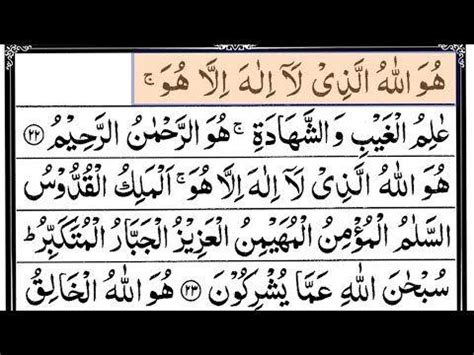 هُوَ اللّٰهُ الَّذِیْ لَاۤ اِلٰهَ اِلَّا هُوَ ۚ
عٰلِمُ الْغَیْبِ وَالشَّهَادَةِ ۚ هُوَ الرَّحْمٰنُ الرَّحِیْمُ ﴿۲۲﴾
هُوَ اللّٰهُ الَّذِیْ لَاۤ اِلٰهَ اِلَّا هُوَ ۚ اَلْمَلِكُ الْقُدُّوْسُ
السَّلٰمُ الْمُؤْمِنُ الْمُهَیْمِنُ الْعَزِیْزُ الْجَبَّارُ الْمُتَكَبِّرُ ؕ
سُبْحٰنَ اللّٰهِ عَمَّا یُشْرِكُوْنَ ﴿۲۳﴾ هُوَ اللّٰهُ الْخَالِقُ